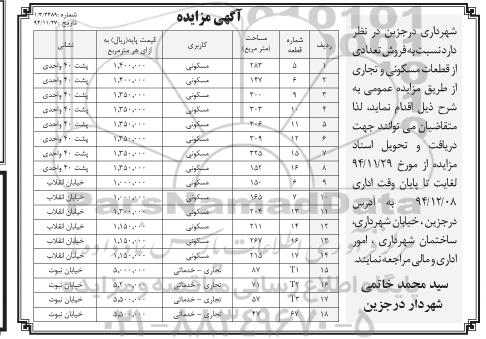 آگهی مزایده
شماره :۱/۳/۴۴۸۹
تاریخ : ۹۴/۱۱/۲۷
شهرداری درجزین در نظر
دارد نسبت به فروش تعدادی
از قطعات مسکونی و تجاری
از طریق مزایده عمومی به
شرح ذیل اقدام نماید، لذا
متقاضیان می توانند جهت
دریافت و تحویل اسناد
مزایده از مورخ ۹۴/۱۱/۲۹
لغایت تا پایان وقت اداری
۹۴/۱۲/۰۸ به آدرس
درجزین ، خیابان شهرداری،
ساختمان شهرداری ، امور
اداری و مالی مراجعه نمایند.
سید محمد خاتمی
شهردار درجزین
ردیف شماره قطعه مساحت (متر مربع) کاربری قیمت پایه(ریال) به ازای هر مترمربع نشانی
۱ ۵ ۲۸۳ مسکونی ۱,۴۰۰,۰۰۰ پشت ۴۰ واحدی
۲ ۶ ۱۴۷ مسکونی ۱,۴۰۰,۰۰۰ پشت ۴۰ واحدی
۳ ۹ ۳۰۰ مسکونی ۱,۳۵۰,۰۰۰ پشت ۴۰ واحدی
۴ ۱۰ ۳۰۳ مسکونی ۱,۳۵۰,۰۰۰ پشت ۴۰ واحدی
۵ ۱۱ ۳۰۶ مسکونی ۱,۳۵۰,۰۰۰ پشت ۴۰ واحدی
۶ ۱۲ ۳۰۹ مسکونی ۱,۳۵۰,۰۰۰ پشت ۴۰ واحدی
۷ ۱۵ ۳۲۵ مسکونی ۱,۳۵۰,۰۰۰ پشت ۴۰ واحدی
۸ ۱۶ ۱۵۲ مسکونی ۱,۳۵۰,۰۰۰ پشت ۴۰ واحدی
۹ ۶ ۱۵۰ مسکونی ۱,۰۰۰,۰۰۰ خیابان انقلاب
۱۰ ۷ ۱۶۵ مسکونی ۱,۰۰۰,۰۰۰ خیابان انقلاب
۱۱ ۱۳ ۲۰۴ مسکونی ۱,۳۰۰,۰۰۰ خیابان انقلاب
۱۲ ۱۴ ۲۱۱ مسکونی ۱,۱۵۰,۰۰۰ خیابان انقلاب
۱۳ ۱۶ ۲۶۷ مسکونی ۱,۱۵۰,۰۰۰ خیابان انقلاب
۱۴ ۱۷ ۲۱۵ مسکونی ۱,۱۵۰,۰۰۰ خیابان انقلاب
۱۵ T۱ ۸۷ تجاری - خدماتی ۵,۰۰۰,۰۰۰ خیابان نبوت
۱۶ T۲ ۷۱ تجاری - خدماتی ۵,۲۰۰,۰۰۰ خیابان نبوت
۱۷ T۳ ۵۷ تجاری - خدماتی ۵,۵۰۰,۰۰۰ خیابان نبوت
۱۸ ۶۷ ۲۷ تجاری - خدماتی ۵,۵۰۰,۰۰۰ خیابان نبوت
ParsNamadData
۰۲۱-۸۸۳۴۹۶۷۰-۵